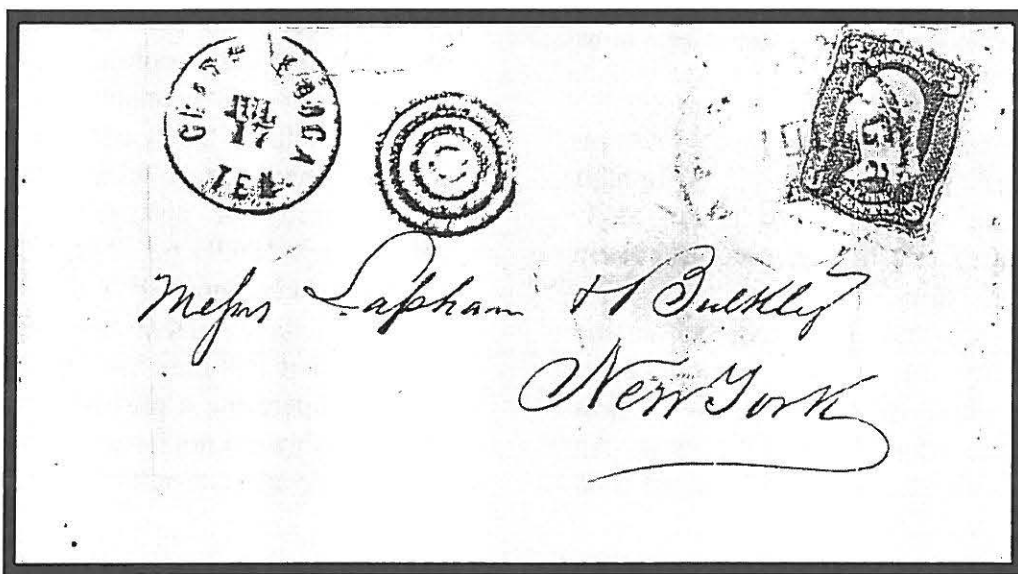 CHATTANOOGA
JUL
17
TEN
Messrs Lapham & Bulkley
New York